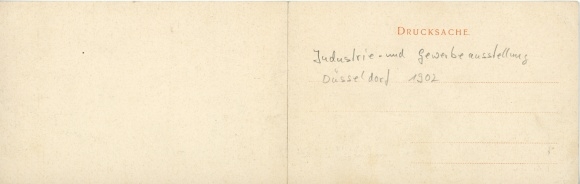 DRUCKSACHE
Industrie- und Gewerbeausstellung
Düsseldorf 1902